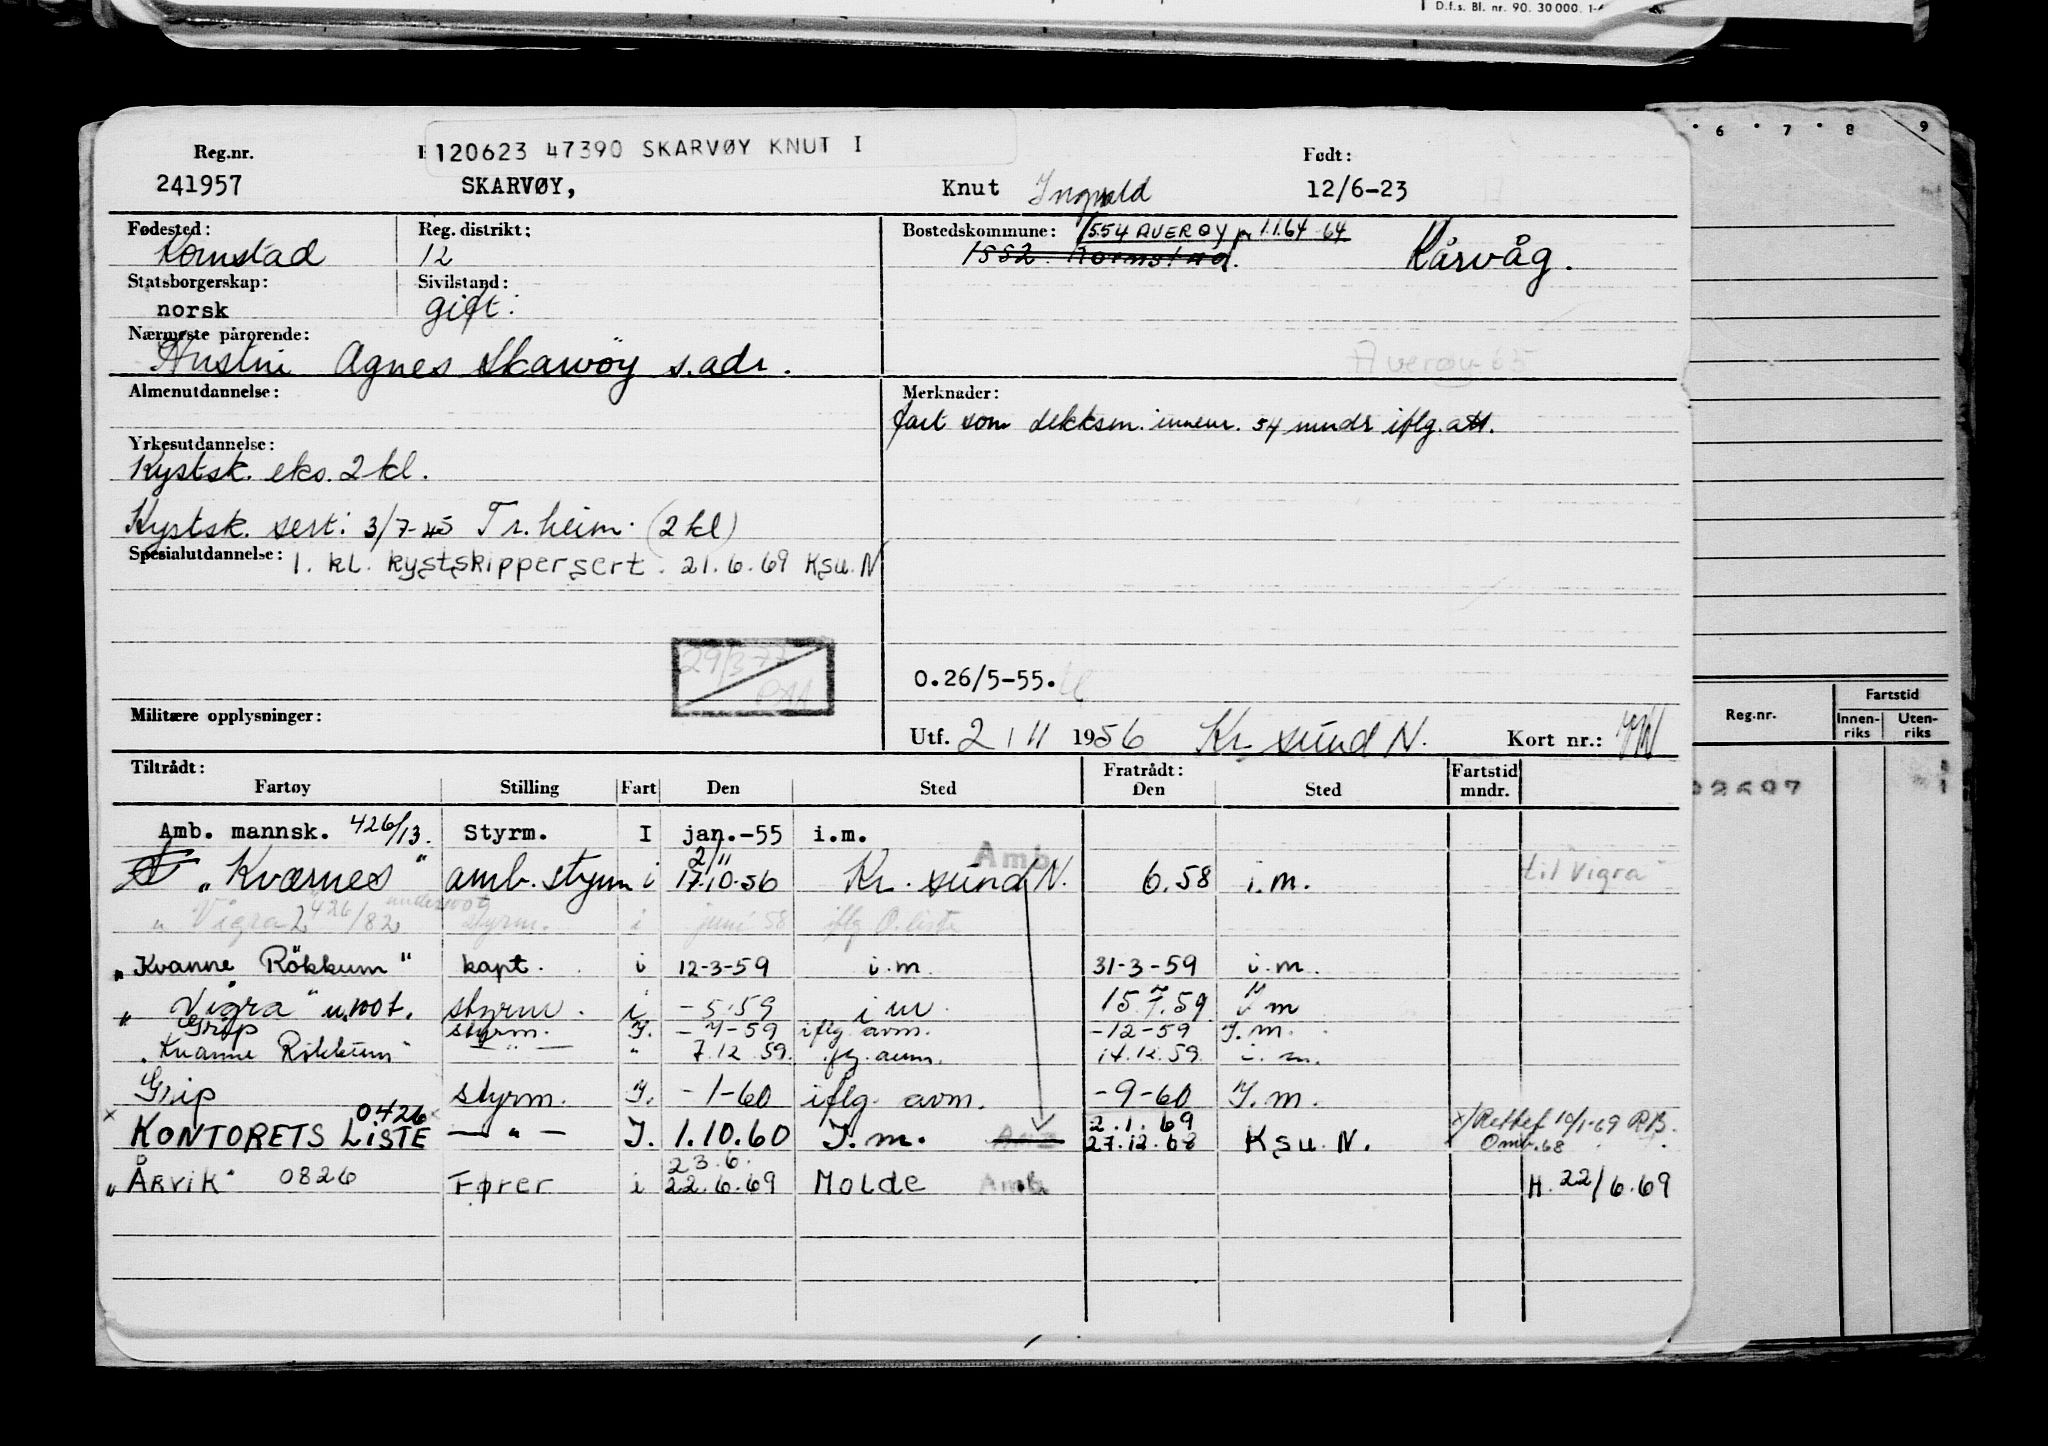 D.f.s. Bl. nr. 90. 30 000.
6 7 8 9
120623 47390 SKARVØY KNUT I
Reg.nr. Født:
241957 SKARVØY, Knut Ingvald 12/6-23
Fødested: Reg. distrikt: Bostedskommune: 1554 AVERØY 1.1.64 64
Kornstad 12 1552 Kornstad. Kårvåg.
Statsborgerskap: Sivilstand:
norsk gift.
Nærmeste pårørende:
Hustru Agnes Skarvøy s.adr. Averøy 65
Almenutdannelse: Merknader:
fart som dekksm. innenr. 54 mndr iflg. att.
Yrkesutdannelse:
Kystsk. eks. 2 kl.
Kystsk. sert: 3/7-45 Tr.heim. (2 kl)
Spesialutdannelse: 1. kl. kystskippersert. 21.6.69 Ksu. N
29/3-77
O.26/5-55.
Militære opplysninger: Utf. 2/11 1956 Kr sund N. Kort nr.:
Reg.nr. Fartstid
Innenriks Utenriks
02697
Tiltrådt: Fratrådt: Fartstid
Fartøy Stilling Fart Den Sted Den Sted mndr.
Amb. mannsk. 426/13. Styrm. I jan.-55 i.m.
2/11 Amb.
"Kværnes" amb. styrm i 17.10.56 Kr. sund N. 6.58 i.m. til Vigra
" Vigra 2 426/82 styrm. i juni 58 iflg O.liste
"Kvanne Rökkum" kapt. i 12-3-59 i.m. 31-3-59 i.m.
" Vigra" u.100t. styrm. i -5.59 i m 15.7.59 i m
Grip styrm. I. -7-59 iflg avm. -12-59 I.m.
"Kvanne Rökkum" — " — " 7.12.59. iflg. avm. 14.12.59. i. m.
Grip styrm. I. -1-60 iflg. avm. -9-60 I.m.
x 0426 x 2.1.69 x/Rettet 10/1-69 RB.
KONTORETS LISTE — " — I. 1.10.60 I.m. Amb 27.12.68 Ksu. N. Omb.68
23.6.
"ÅRVIK" 0826 Fører i 22.6.69 Molde Amb. H. 22/6.69